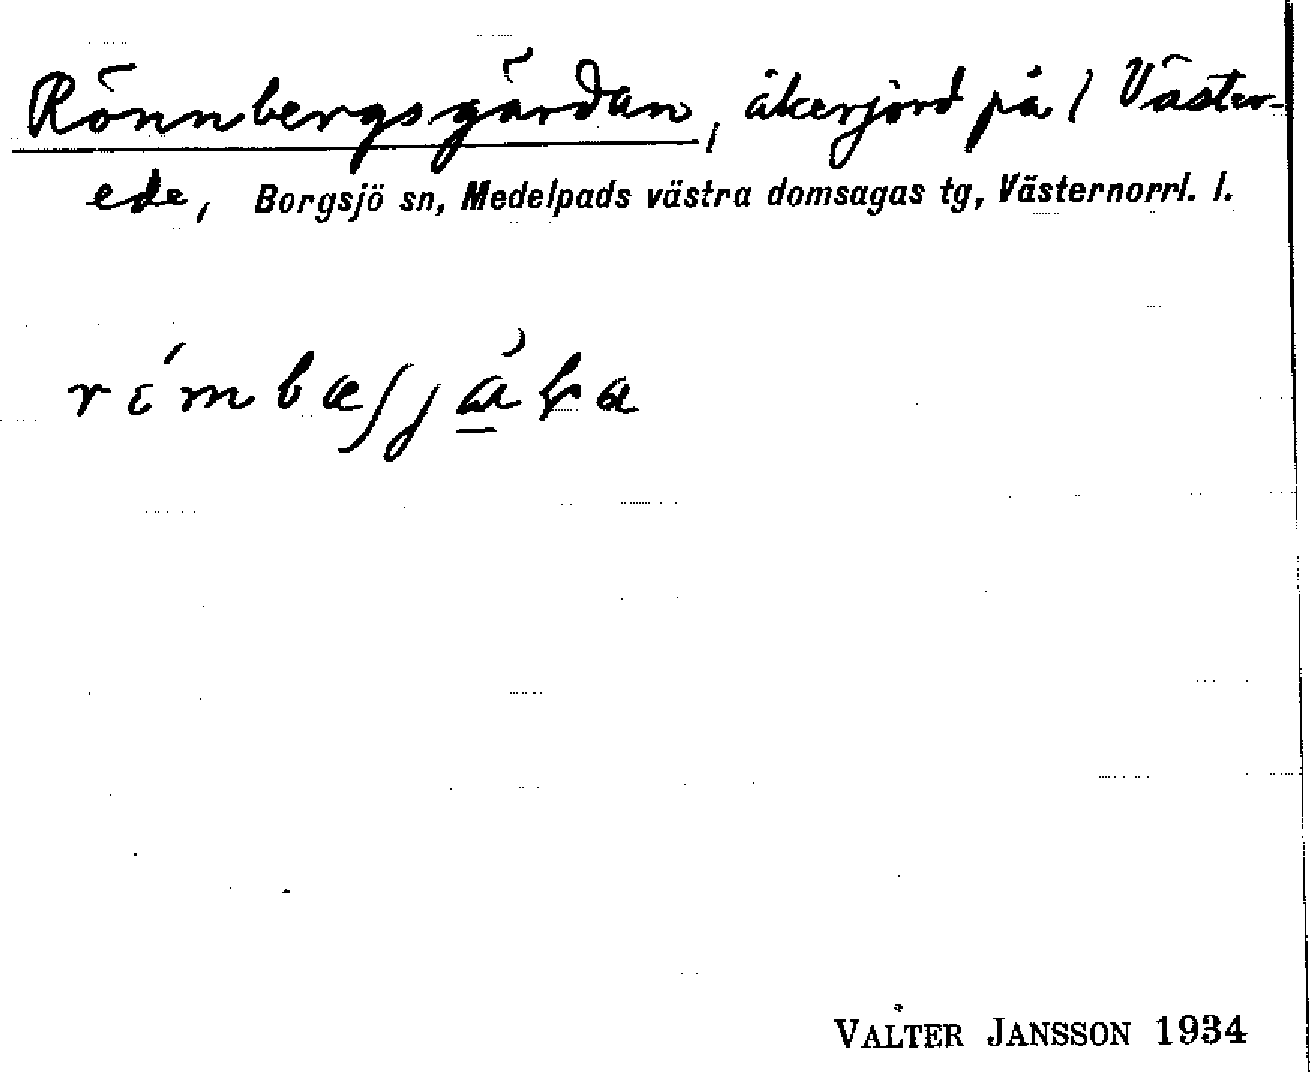 Rönnbergsgärdan, åkerjord på / Väster-
ede, Borgsjö sn, Medelpads västra domsagas tg, Västernorrl. l.
VALTER JANSSON 1934